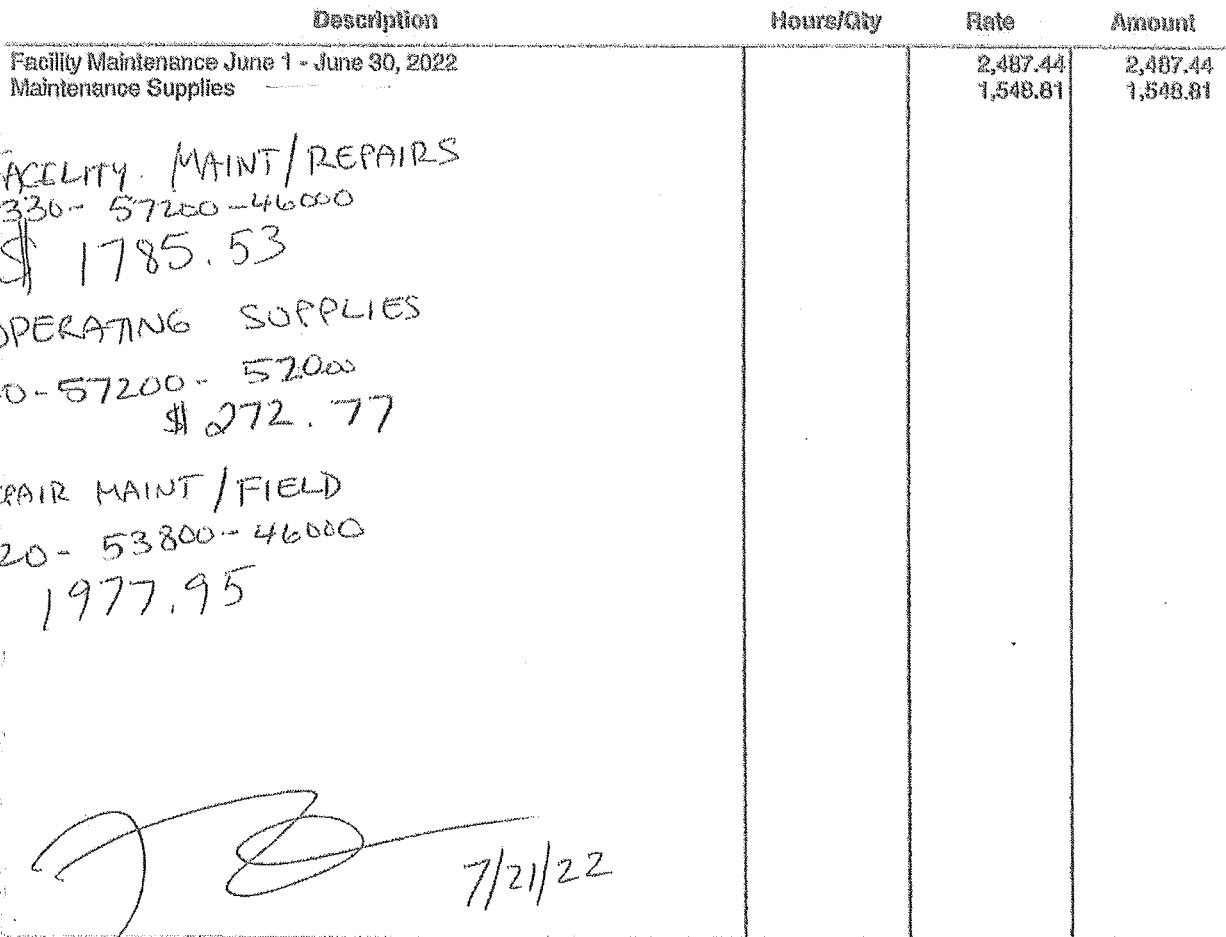 Description Hours/Qty Rate Amount
Facility Maintenance June 1 - June 30, 2022 2,487.44 2,487.44
Maintenance Supplies 1,548.81 1,548.81
ACILITY. MAINT/REPAIRS
330- 57200-46000
$ 1785.53
OPERATING SUPPLIES
0-57200- 52000
$ 272.77
EPAIR MAINT/FIELD
20- 53800-46000
1977.95
7/21/22